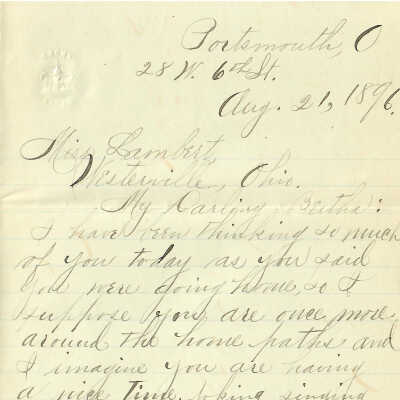 Portsmouth, O
28 W. 6th St.
Aug. 21, 1896.
Miss Lambert,
Westerville, Ohio.
My Darling Bertha:
I have been thinking so much
of you today as you said
you were going home, so I
suppose you are once more
around the home paths and
I imagine you are having
a nice time, joking, singing